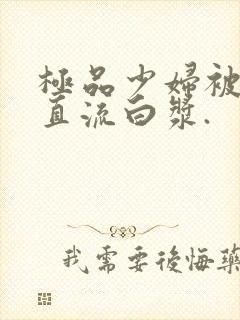 極品少婦被
直流白漿.
我需要後悔藥